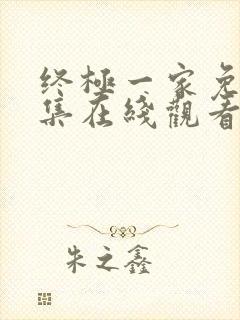 终極一家免
集在綫觀看
朱之鑫